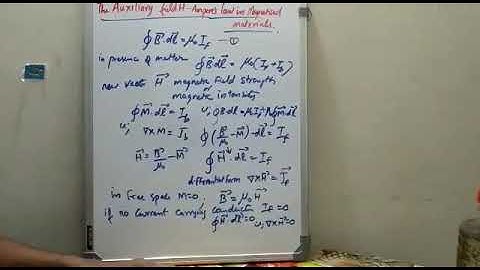 The Auxiliary field H - Ampere's law in Magnetised
materials.
∮B⃗.dl⃗ = μ₀ I_f — ①
in presence of matter ∮B⃗.dl⃗ = μ₀(I_f + I_b)
new vector H⃗ magnetic field strength
magnetic intensity
∮M⃗.dl⃗ = I_b
∮B⃗.dl⃗ = μ₀I_f + μ₀∮M⃗.dl⃗
∇×M = J⃗_b ∮(B⃗/μ₀ − M⃗).dl⃗ = I_f
H⃗ = B⃗/μ₀ − M⃗ ∮H⃗.dl⃗ = I_f
differential form ∇×H⃗ = J⃗_f
in free space M=0, B⃗ = μ₀H⃗
if no current carrying conductor I_f = 0
∮H⃗.dl⃗ = 0 ∇×H⃗ = 0